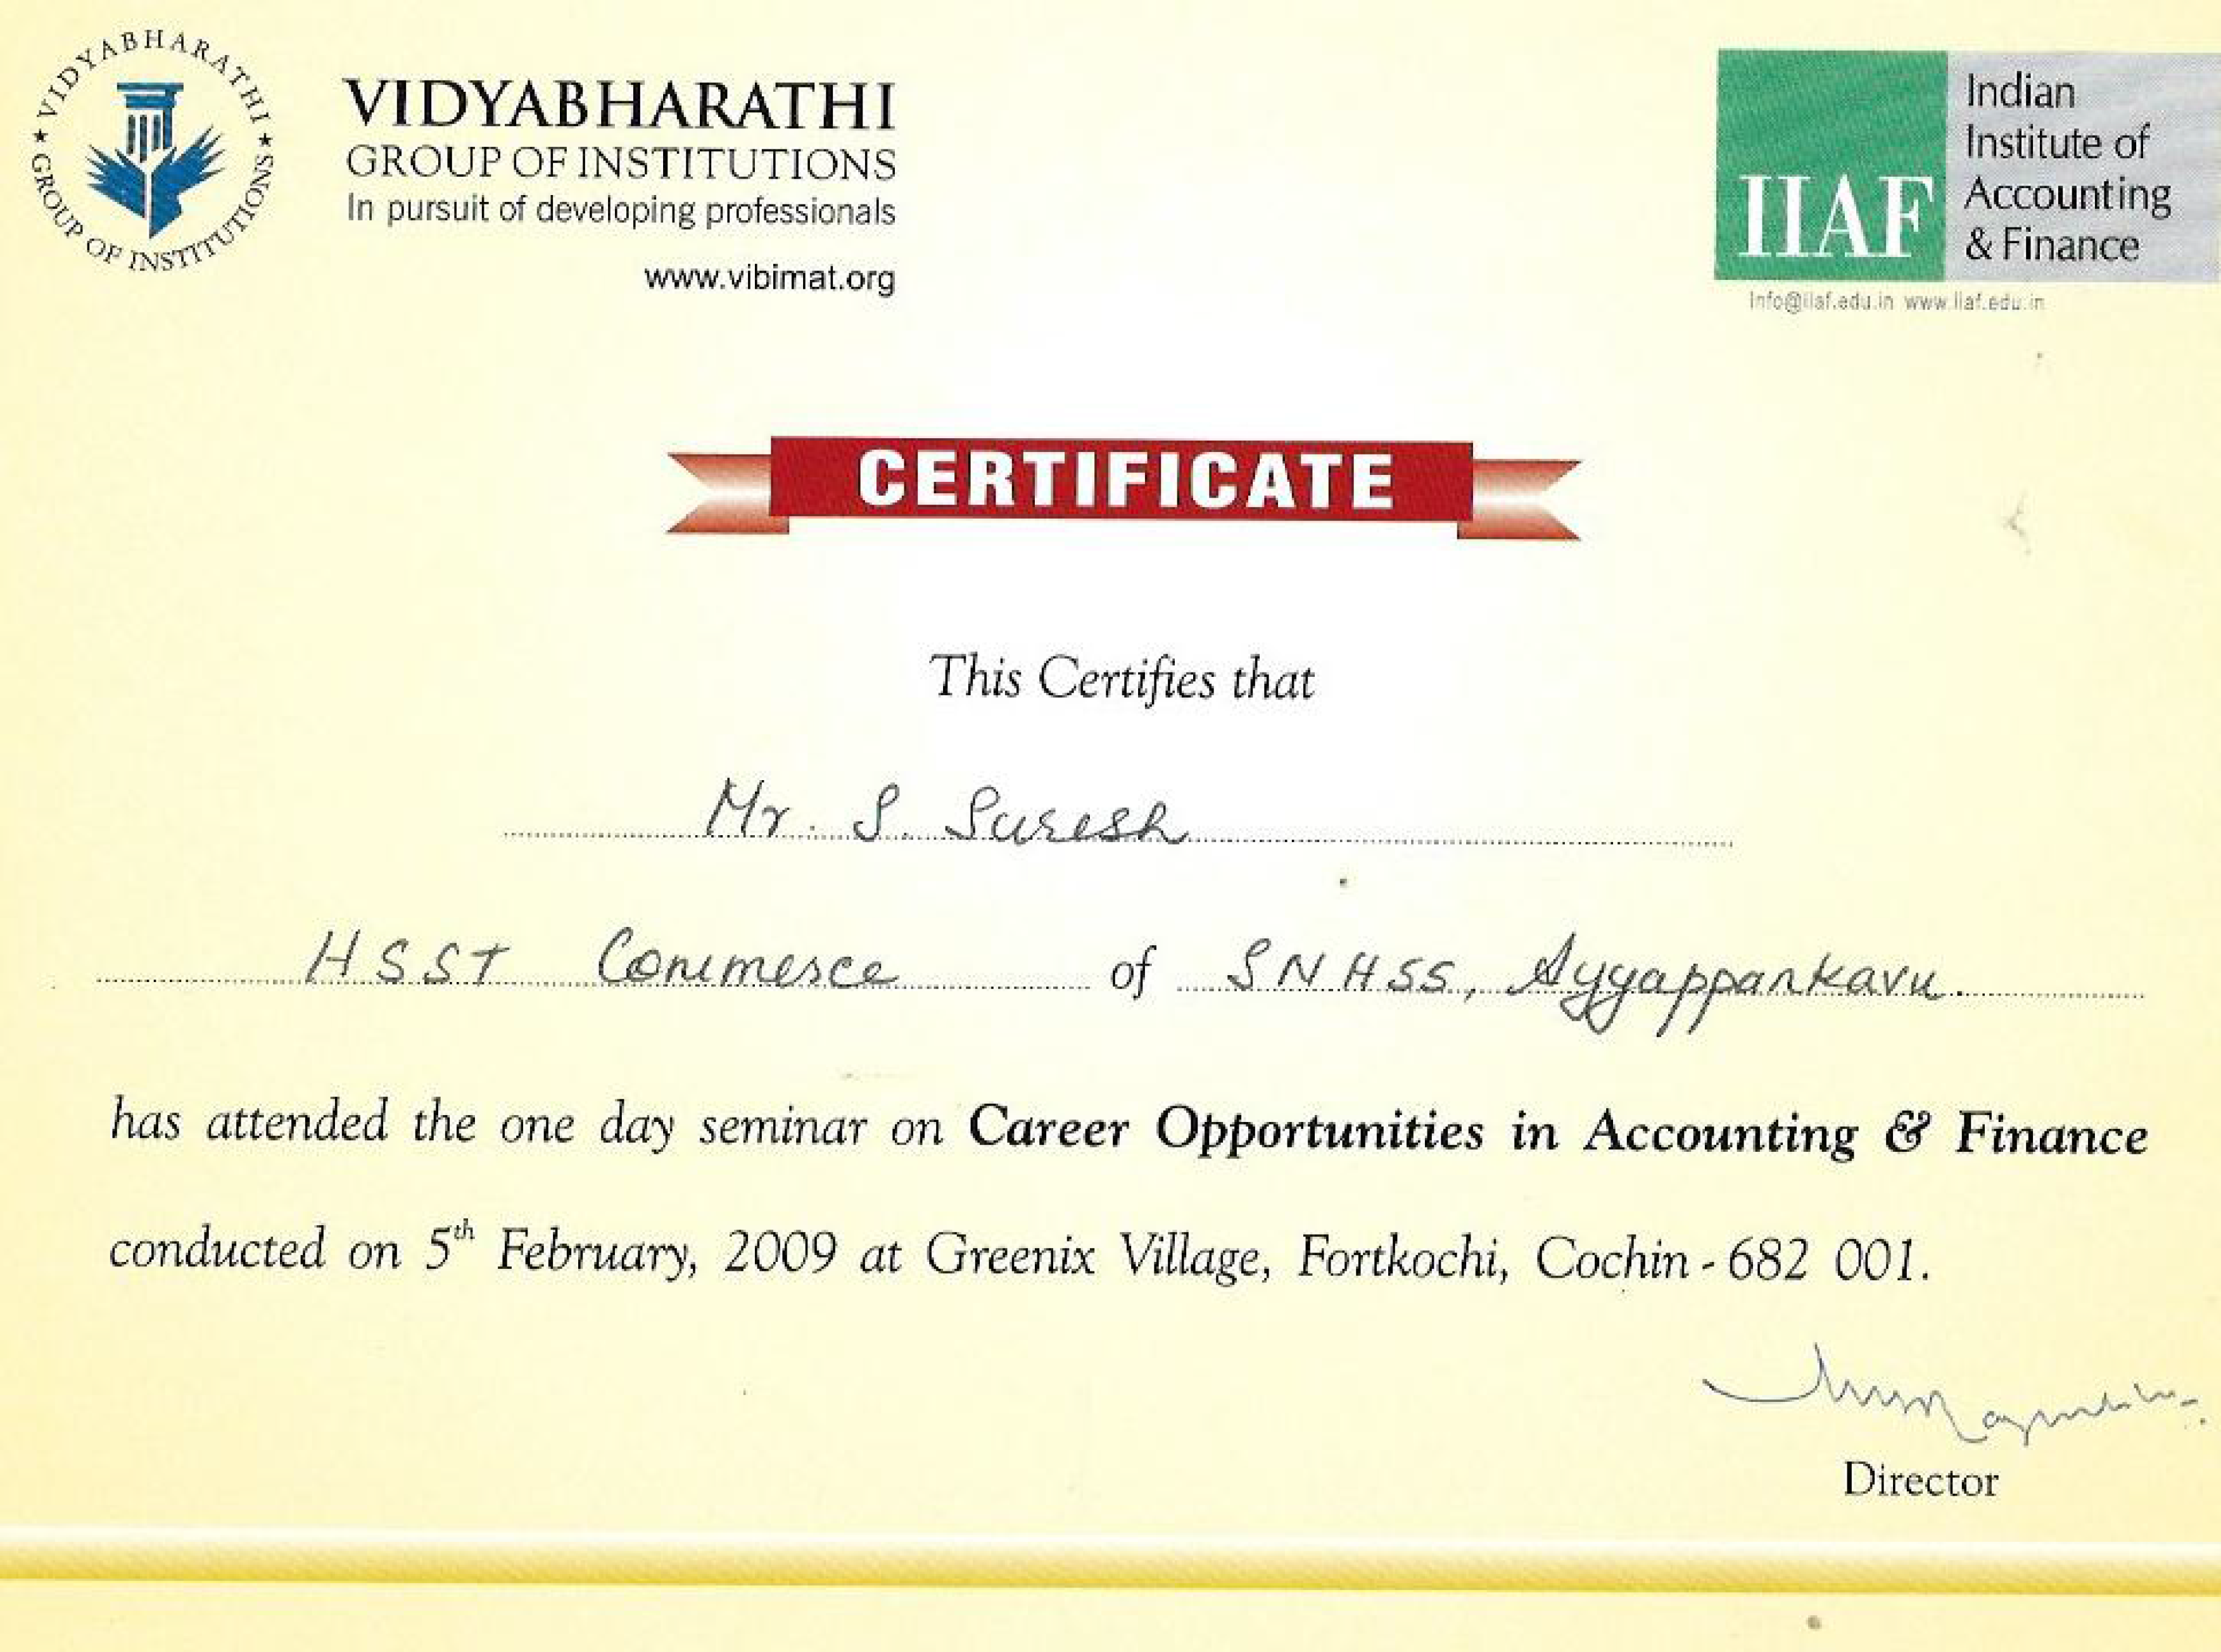 VIDYABHARATHI
GROUP OF INSTITUTIONS
VIDYABHARATHI
GROUP OF INSTITUTIONS
In pursuit of developing professionals
www.vibimat.org
IIAF
Indian
Institute of
Accounting
& Finance
Info@iiaf.edu.in www.iiaf.edu.in
CERTIFICATE
This Certifies that
Mr. S. Suresh
HSST Commerce of SNHSS, Ayyappankavu.
has attended the one day seminar on Career Opportunities in Accounting & Finance
conducted on 5th February, 2009 at Greenix Village, Fortkochi, Cochin - 682 001.
Director